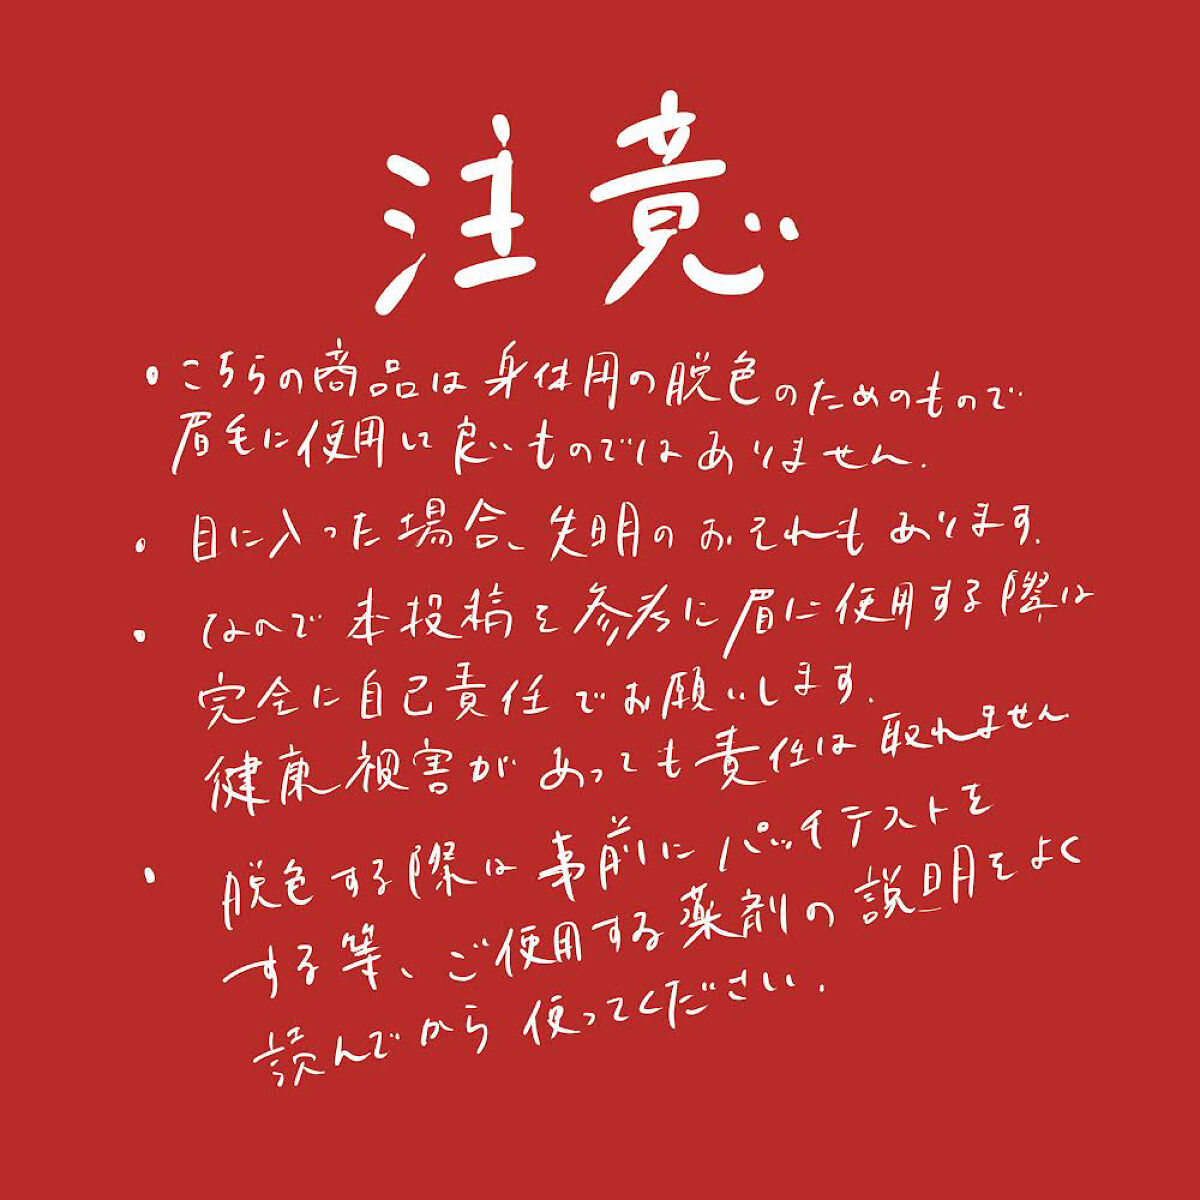 注意
・こちらの商品は身体用の脱色のためのもので
眉毛に使用して良いものではありません.
・目に入った場合、失明のおそれもあります.
・なので本投稿を参考に眉に使用する際は
完全に自己責任でお願いします.
健康被害があっても責任は取れません
・脱色する際は事前にパッチテストを
する等、ご使用する薬剤の説明をよく
読んでから使ってください.